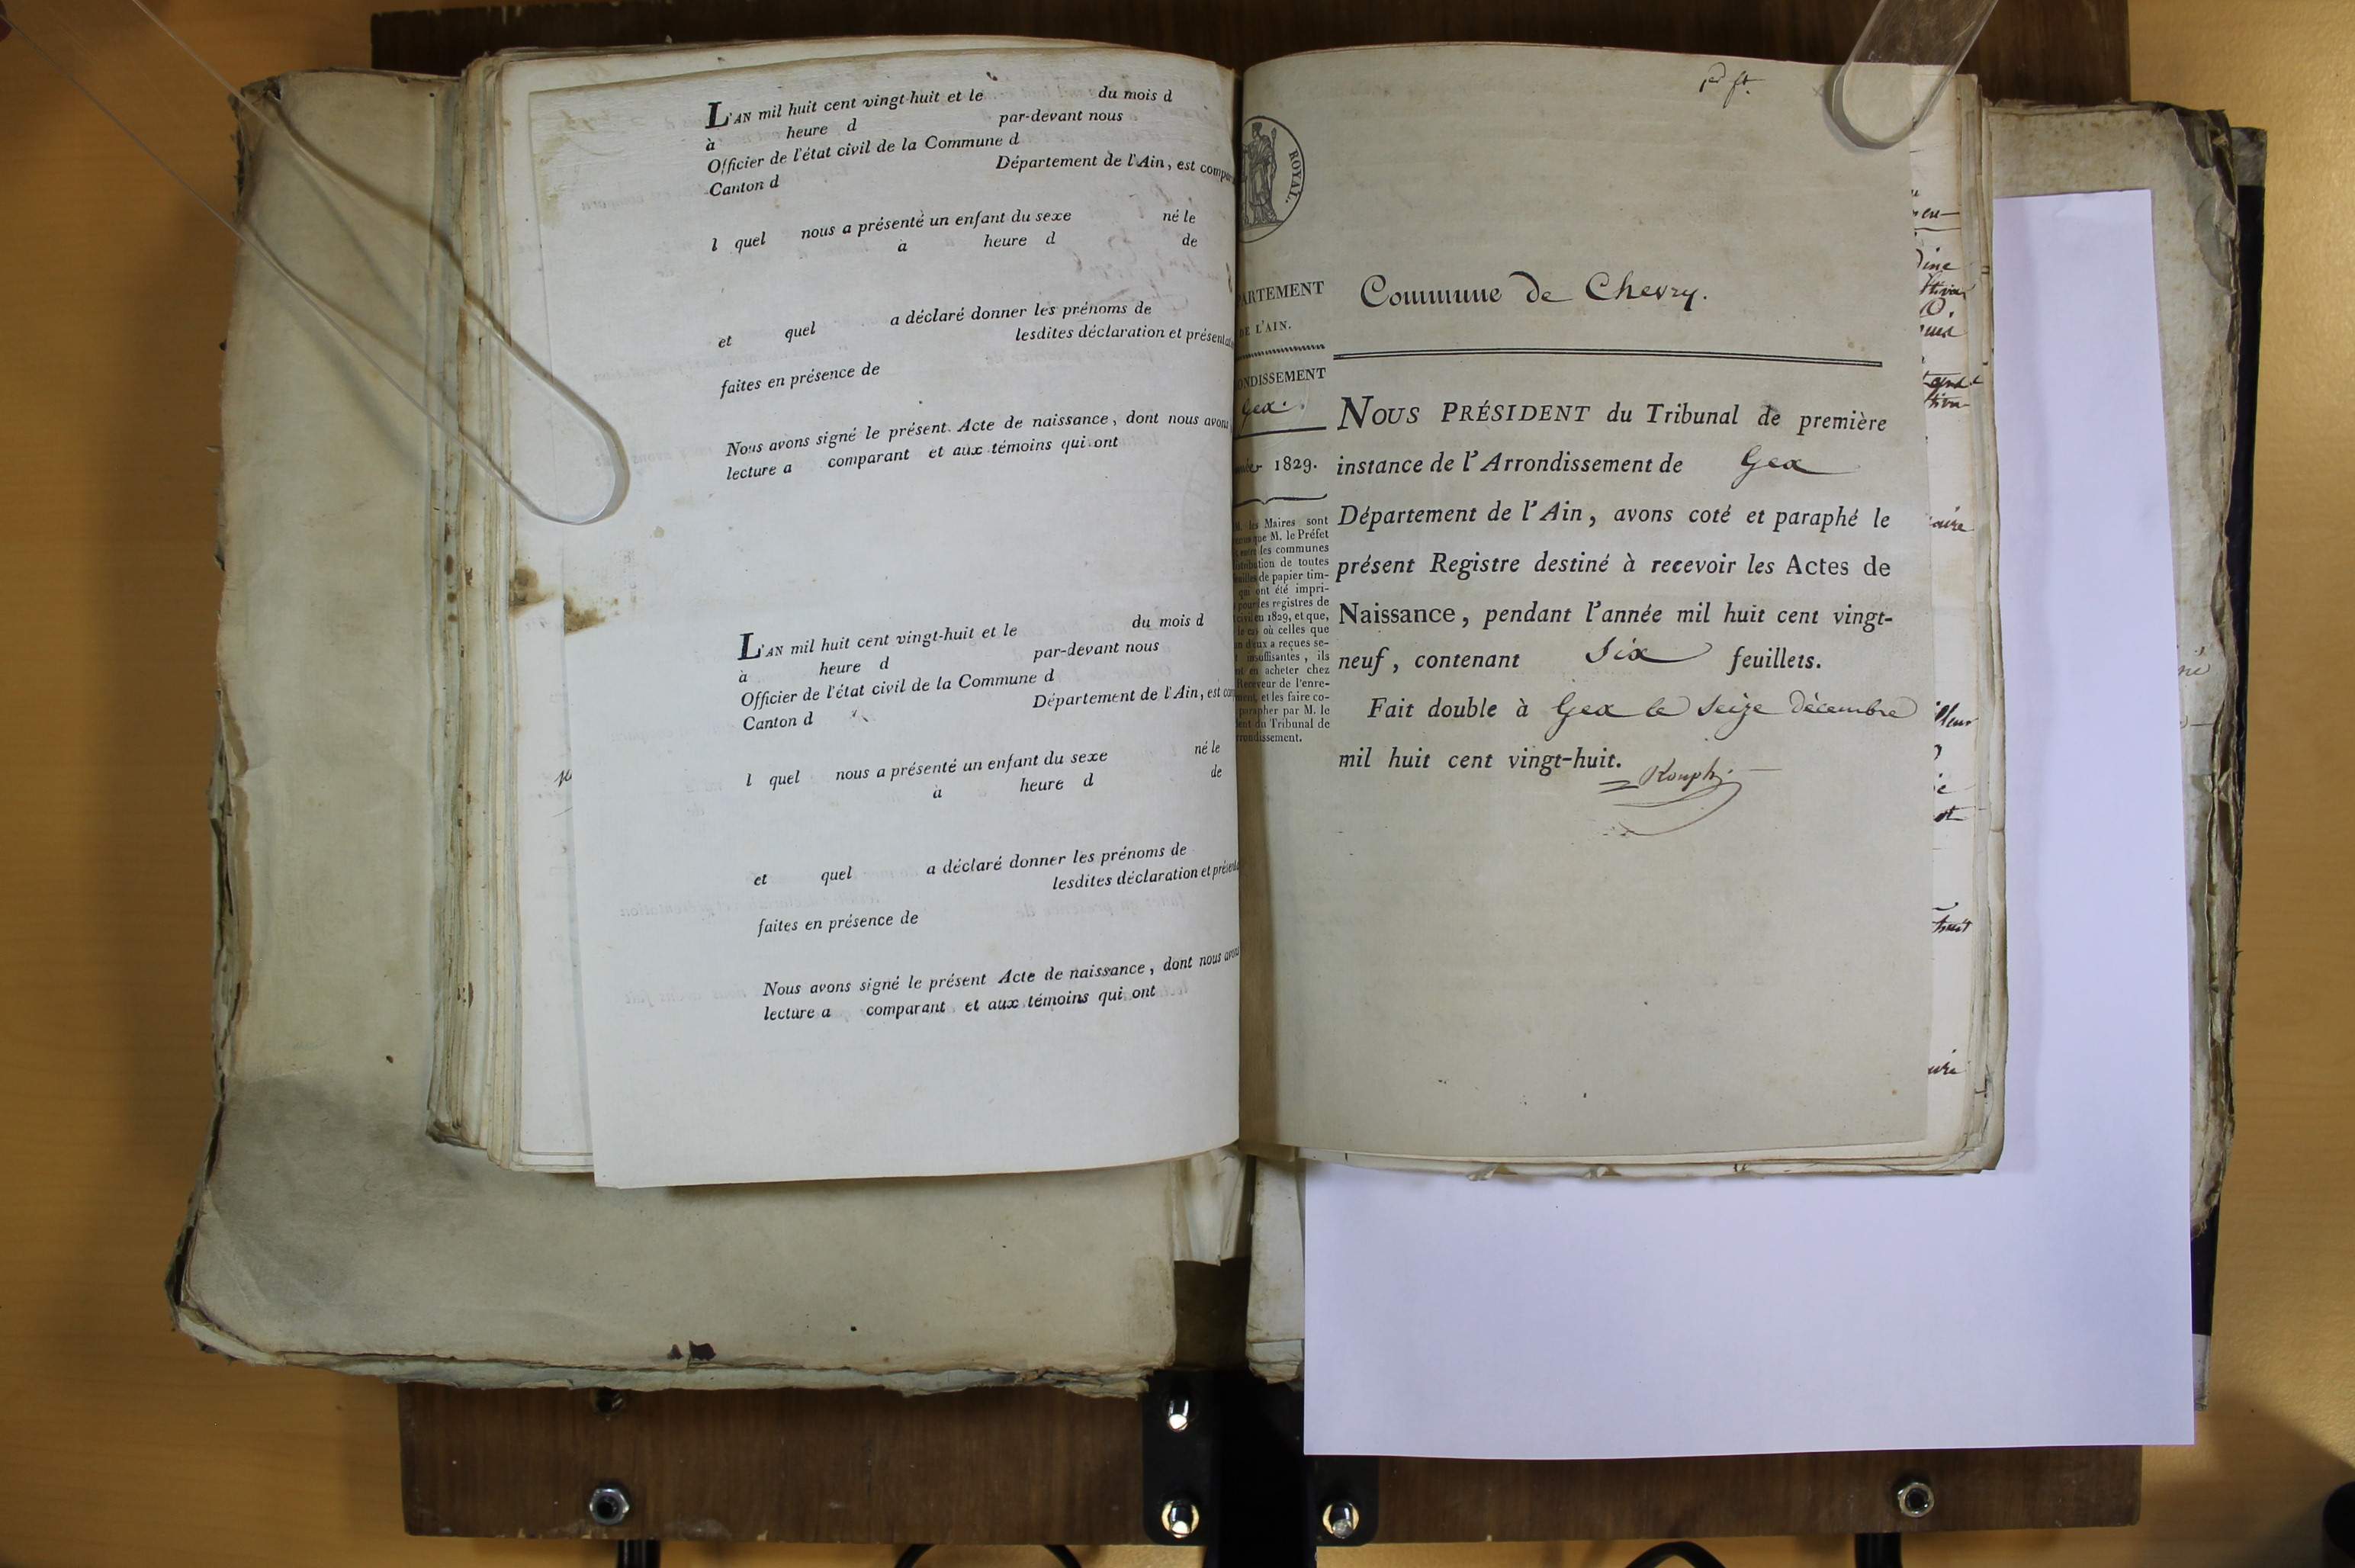 L'AN mil huit cent vingt-huit et le du mois d
à heure d par-devant nous
Officier de l'état civil de la Commune d
Canton d Département de l'Ain, est
l quel nous a présenté un enfant du sexe né le
à heure d de
et quel a déclaré donner les prénoms de
lesdites déclaration et
faites en présence de
Nous avons signé le présent Acte de naissance, dont nous avons
lecture a comparant et aux témoins qui ont
L'AN mil huit cent vingt-huit et le du mois d
à heure d par-devant nous
Officier de l'état civil de la Commune d
Canton d Département de l'Ain, est
l quel nous a présenté un enfant du sexe né le
à heure d de
et quel a déclaré donner les prénoms de
lesdites déclaration et
faites en présence de
Nous avons signé le présent Acte de naissance, dont nous
lecture a comparant et aux témoins qui ont
ROYAL.
PARTEMENT
DE L'AIN.
ONDISSEMENT
Gex.
1829.
les Maires sont
que M. le Préfet
les communes
de toutes
de papier tim-
qui ont été impri-
les registres de
en 1829, et que,
où celles que
a reçues se-
insuffisantes, ils
acheter chez
Receveur de l'enre-
et les faire co-
parapher par M. le
du Tribunal de
rrondissement.
Commune de Chevry.
NOUS PRÉSIDENT du Tribunal de première
instance de l'Arrondissement de Gex
Département de l'Ain, avons coté et paraphé le
présent Registre destiné à recevoir les Actes de
Naissance, pendant l'année mil huit cent vingt-
neuf, contenant Six feuillets.
Fait double à Gex le Seize décembre
mil huit cent vingt-huit.